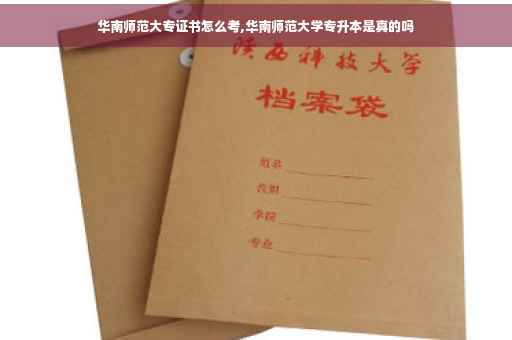 华南师范大专证书怎么考,华南师范大学专升本是真的吗
陕西科技大学
档案袋
姓名
学院
专业